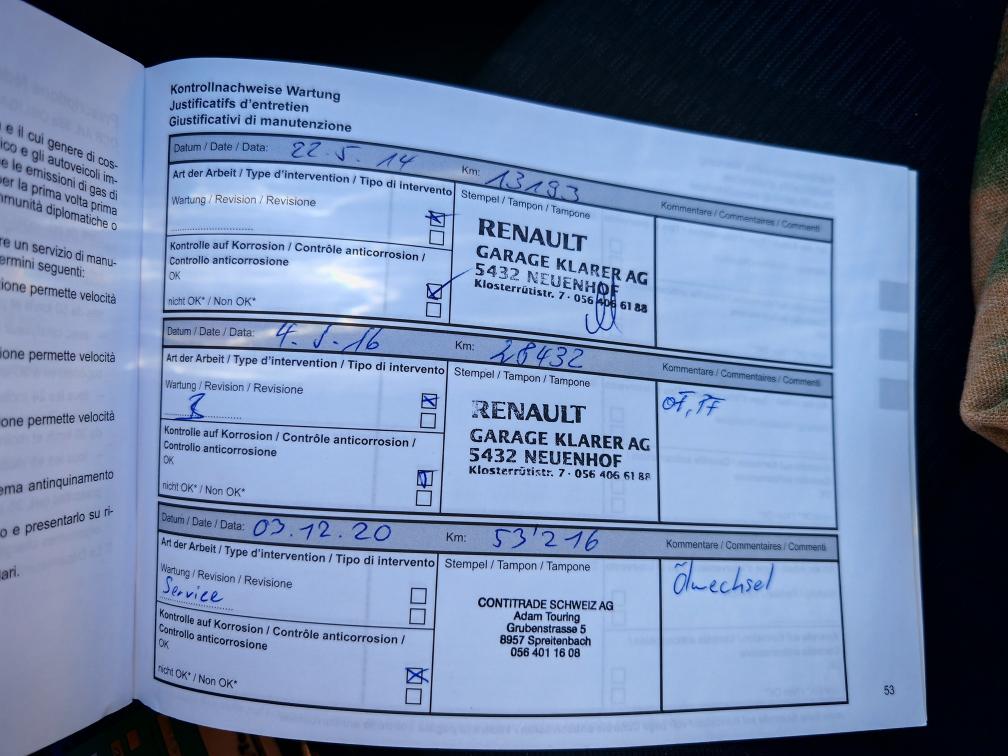 e il cui genere di cos-
ico e gli autoveicoli im-
e le emissioni di gas di
per la prima volta prima
munità diplomatiche o
re un servizio di manu-
ermini seguenti:
ione permette velocità
ione permette velocità
one permette velocità
ema antinquinamento
o e presentarlo su ri-
ari.
Kontrollnachweise Wartung
Justificatifs d'entretien
Giustificativi di manutenzione
Datum / Date / Data: 22.5.14 Km: 13193
Kommentare / Commentaires / Commenti
Art der Arbeit / Type d'intervention / Tipo di intervento
Wartung / Revision / Revisione
Kontrolle auf Korrosion / Contrôle anticorrosion /
Controllo anticorrosione
OK
nicht OK* / Non OK*
Stempel / Tampon / Tampone
RENAULT
GARAGE KLARER AG
5432 NEUENHOF
Klosterrütistr. 7 · 056 406 61 88
Datum / Date / Data: 4.5.16 Km: 28432
Kommentare / Commentaires / Commenti
Art der Arbeit / Type d'intervention / Tipo di intervento
Wartung / Revision / Revisione
Kontrolle auf Korrosion / Contrôle anticorrosion /
Controllo anticorrosione
OK
nicht OK* / Non OK*
Stempel / Tampon / Tampone
RENAULT
GARAGE KLARER AG
5432 NEUENHOF
Klosterrütistr. 7 · 056 406 61 88
Datum / Date / Data: 03.12.20 Km: 53'216
Kommentare / Commentaires / Commenti
Art der Arbeit / Type d'intervention / Tipo di intervento
Wartung / Revision / Revisione
Service
Kontrolle auf Korrosion / Contrôle anticorrosion /
Controllo anticorrosione
OK
nicht OK* / Non OK*
Stempel / Tampon / Tampone
CONTITRADE SCHWEIZ AG
Adam Touring
Grubenstrasse 5
8957 Spreitenbach
056 401 16 08
Ölwechsel
53